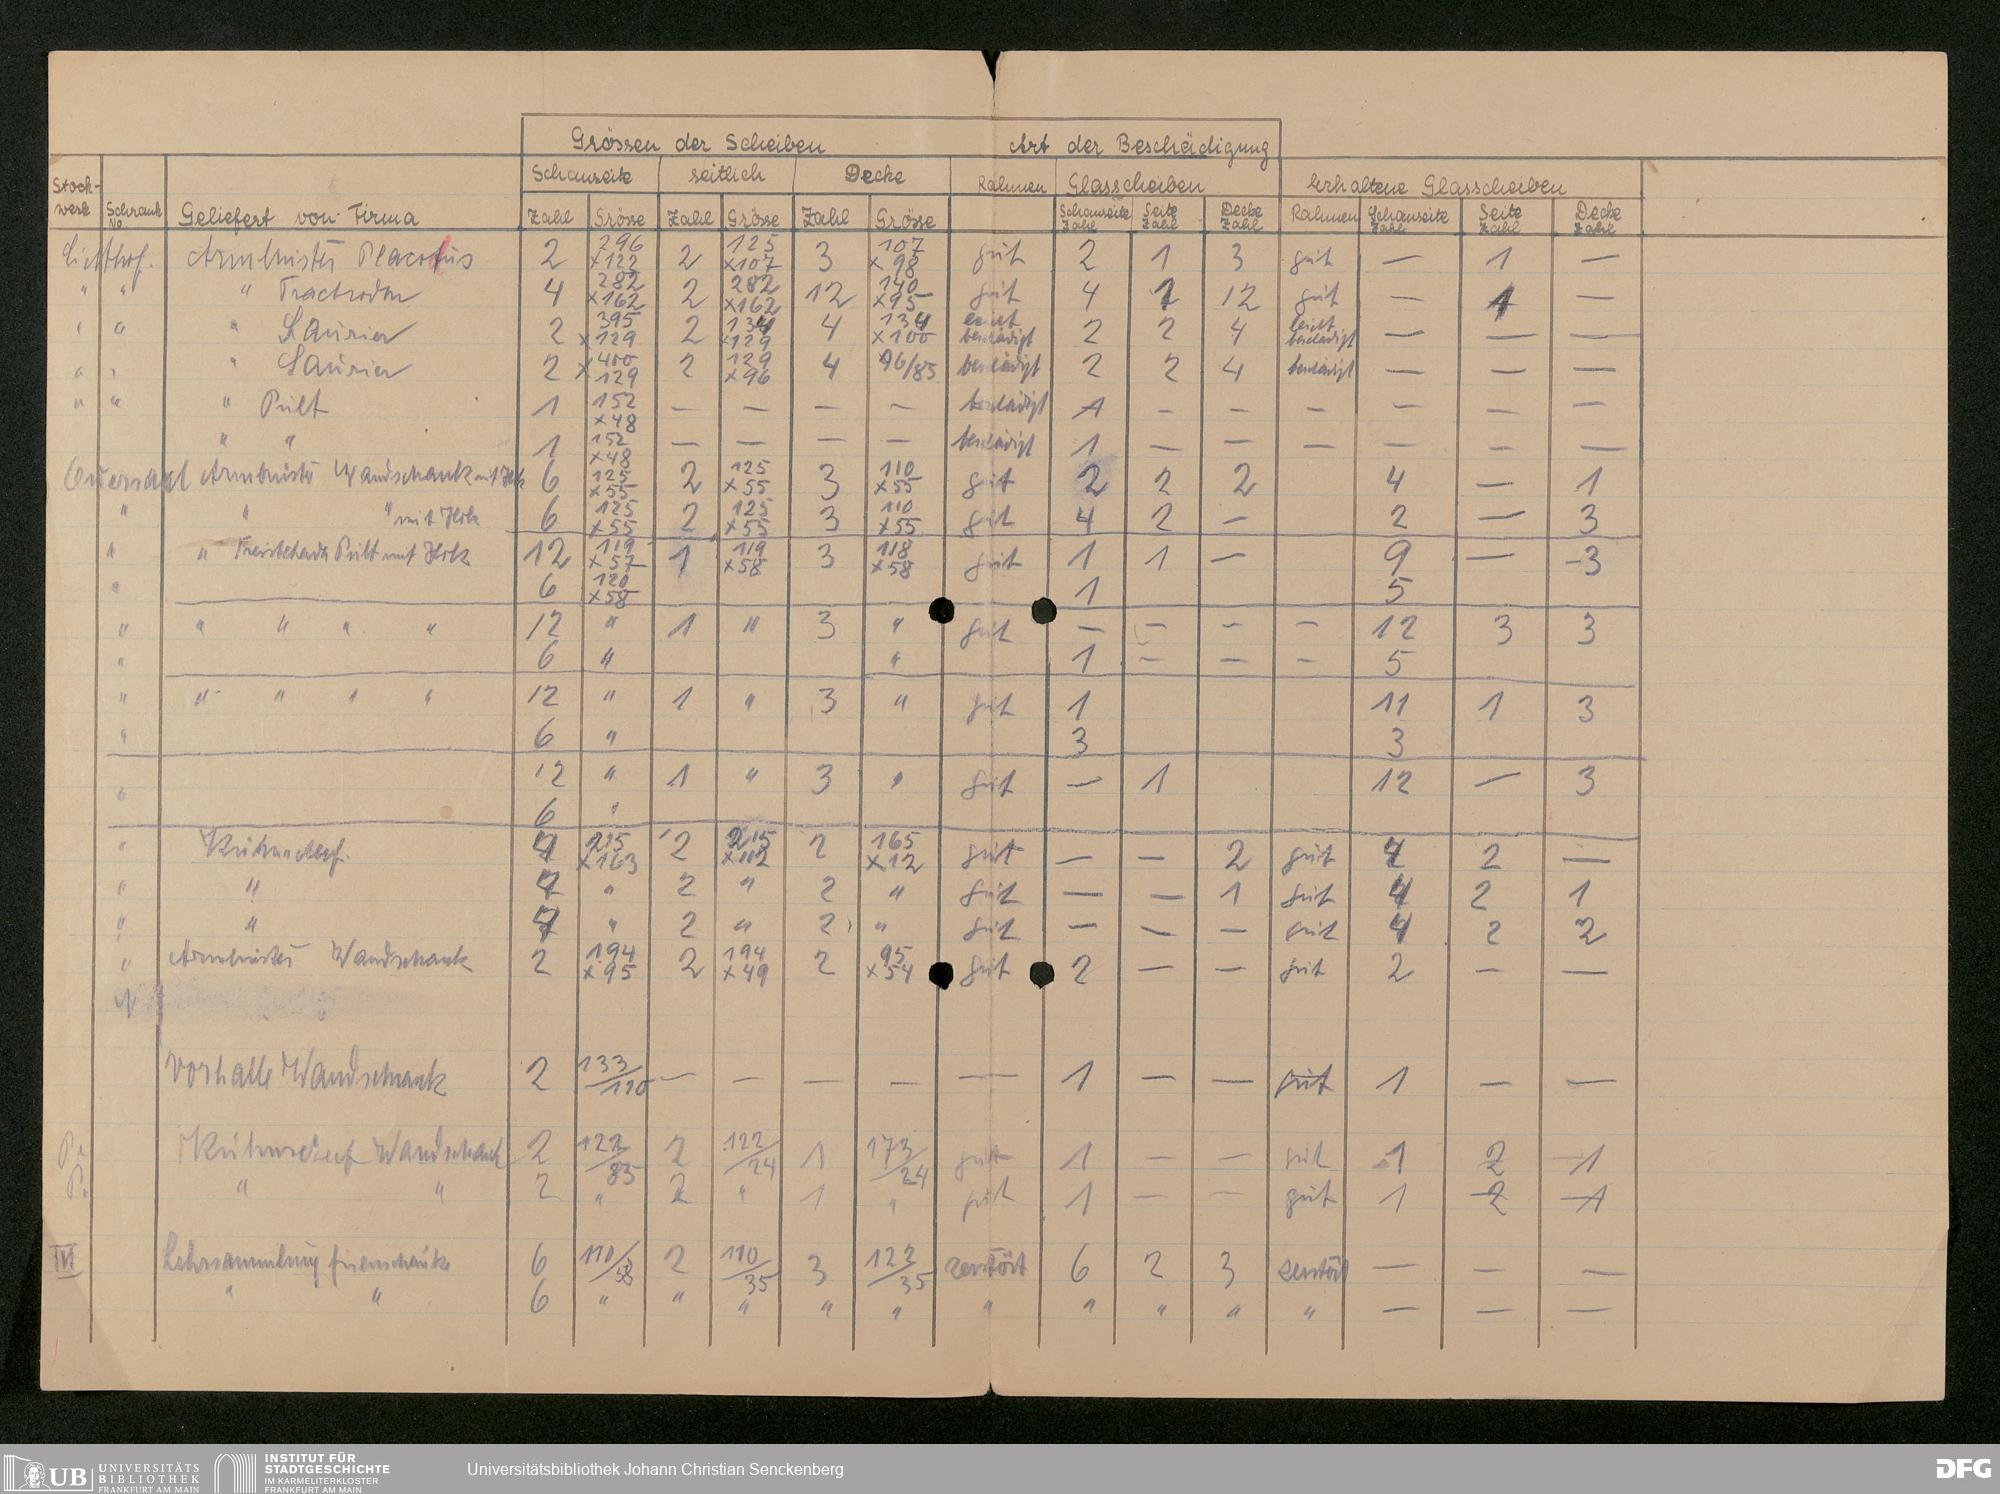 Grössen der Scheiben Art der Beschädigung
Schauseite seitlich Decke Rahmen Glasscheiben Erhaltene Glasscheiben
Stock-
werk Schrank No. Geliefert von Firma Zahl Grösse Zahl Grösse Zahl Grösse Schauseite Zahl Seite Zahl Decke Zahl Rahmen Schauseite Zahl Seite Zahl Decke Zahl
Lichthof. Armbruster Placodus 2 296 x122 2 125 x107 3 107 x 98 gut 2 1 3 gut — 1 —
" " " Trachodon 4 282 x162 2 282 x162 12 140 x95 gut 4 1 12 gut — 1 —
" " " Saurier 2 395 x129 2 134 x129 4 134 x100 leicht beschädigt 2 2 4 leicht beschädigt — — —
" " " Saurier 2 x 400 129 2 129 x96 4 96/85 beschädigt 2 2 4 beschädigt — — —
" " " Pult 1 152 x48 — — — — beschädigt 1 - - - - - -
" " 1 152 x48 — — — — beschädigt 1 — — — — — —
Quersaal Armbruster Wandschrank mit Holz 6 125 x55 2 125 x55 3 110 x55 gut 2 2 2 4 — 1
" " " mit Holz 6 125 x55 2 125 x55 3 110 x55 gut 4 2 — 2 — 3
" " Freistehende Pult mit Holz 12 119 x57 1 119 x58 3 118 x58 gut 1 1 — 9 — -3
" 6 120 x58 1 5
" " " " " 12 " 1 " 3 " gut — - - - 12 3 3
" 6 " " 1 - - - 5
" " " " " 12 " 1 " 3 " gut 1 11 1 3
" 6 " 3 3
12 " 1 " 3 " gut — 1 12 — 3
" 6 "
" Kühnscherf. 4 215 x163 2 215 x112 2 165 x12 gut — — 2 gut 4 2 —
" " 4 " 2 " 2 " gut — — 1 gut 4 2 1
" " 4 " 2 " 2 " gut — — — gut 4 2 2
" Armbruster Wandschrank 2 194 x95 2 194 x49 2 95 x54 gut 2 — — gut 2 — —
Vorhalle Wandschrank 2 133/110 — — — — — 1 — — gut 1 — —
P. Kühnscherf Wandschrank 2 122/85 2 122/24 1 173/24 gut 1 — — gut 1 2 1
P. " " 2 " 2 " 1 " gut 1 — — gut 1 2 1
IV Lehrsammlung Eisenschränke 6 110/58 2 110/35 3 122/35 zerstört 6 2 3 zerstört — — —
" " 6 " " " " " " " " " " — — —
UB UNIVERSITÄTS
BIBLIOTHEK
FRANKFURT AM MAIN
INSTITUT FÜR
STADTGESCHICHTE
IM KARMELITERKLOSTER
FRANKFURT AM MAIN
Universitätsbibliothek Johann Christian Senckenberg
DFG